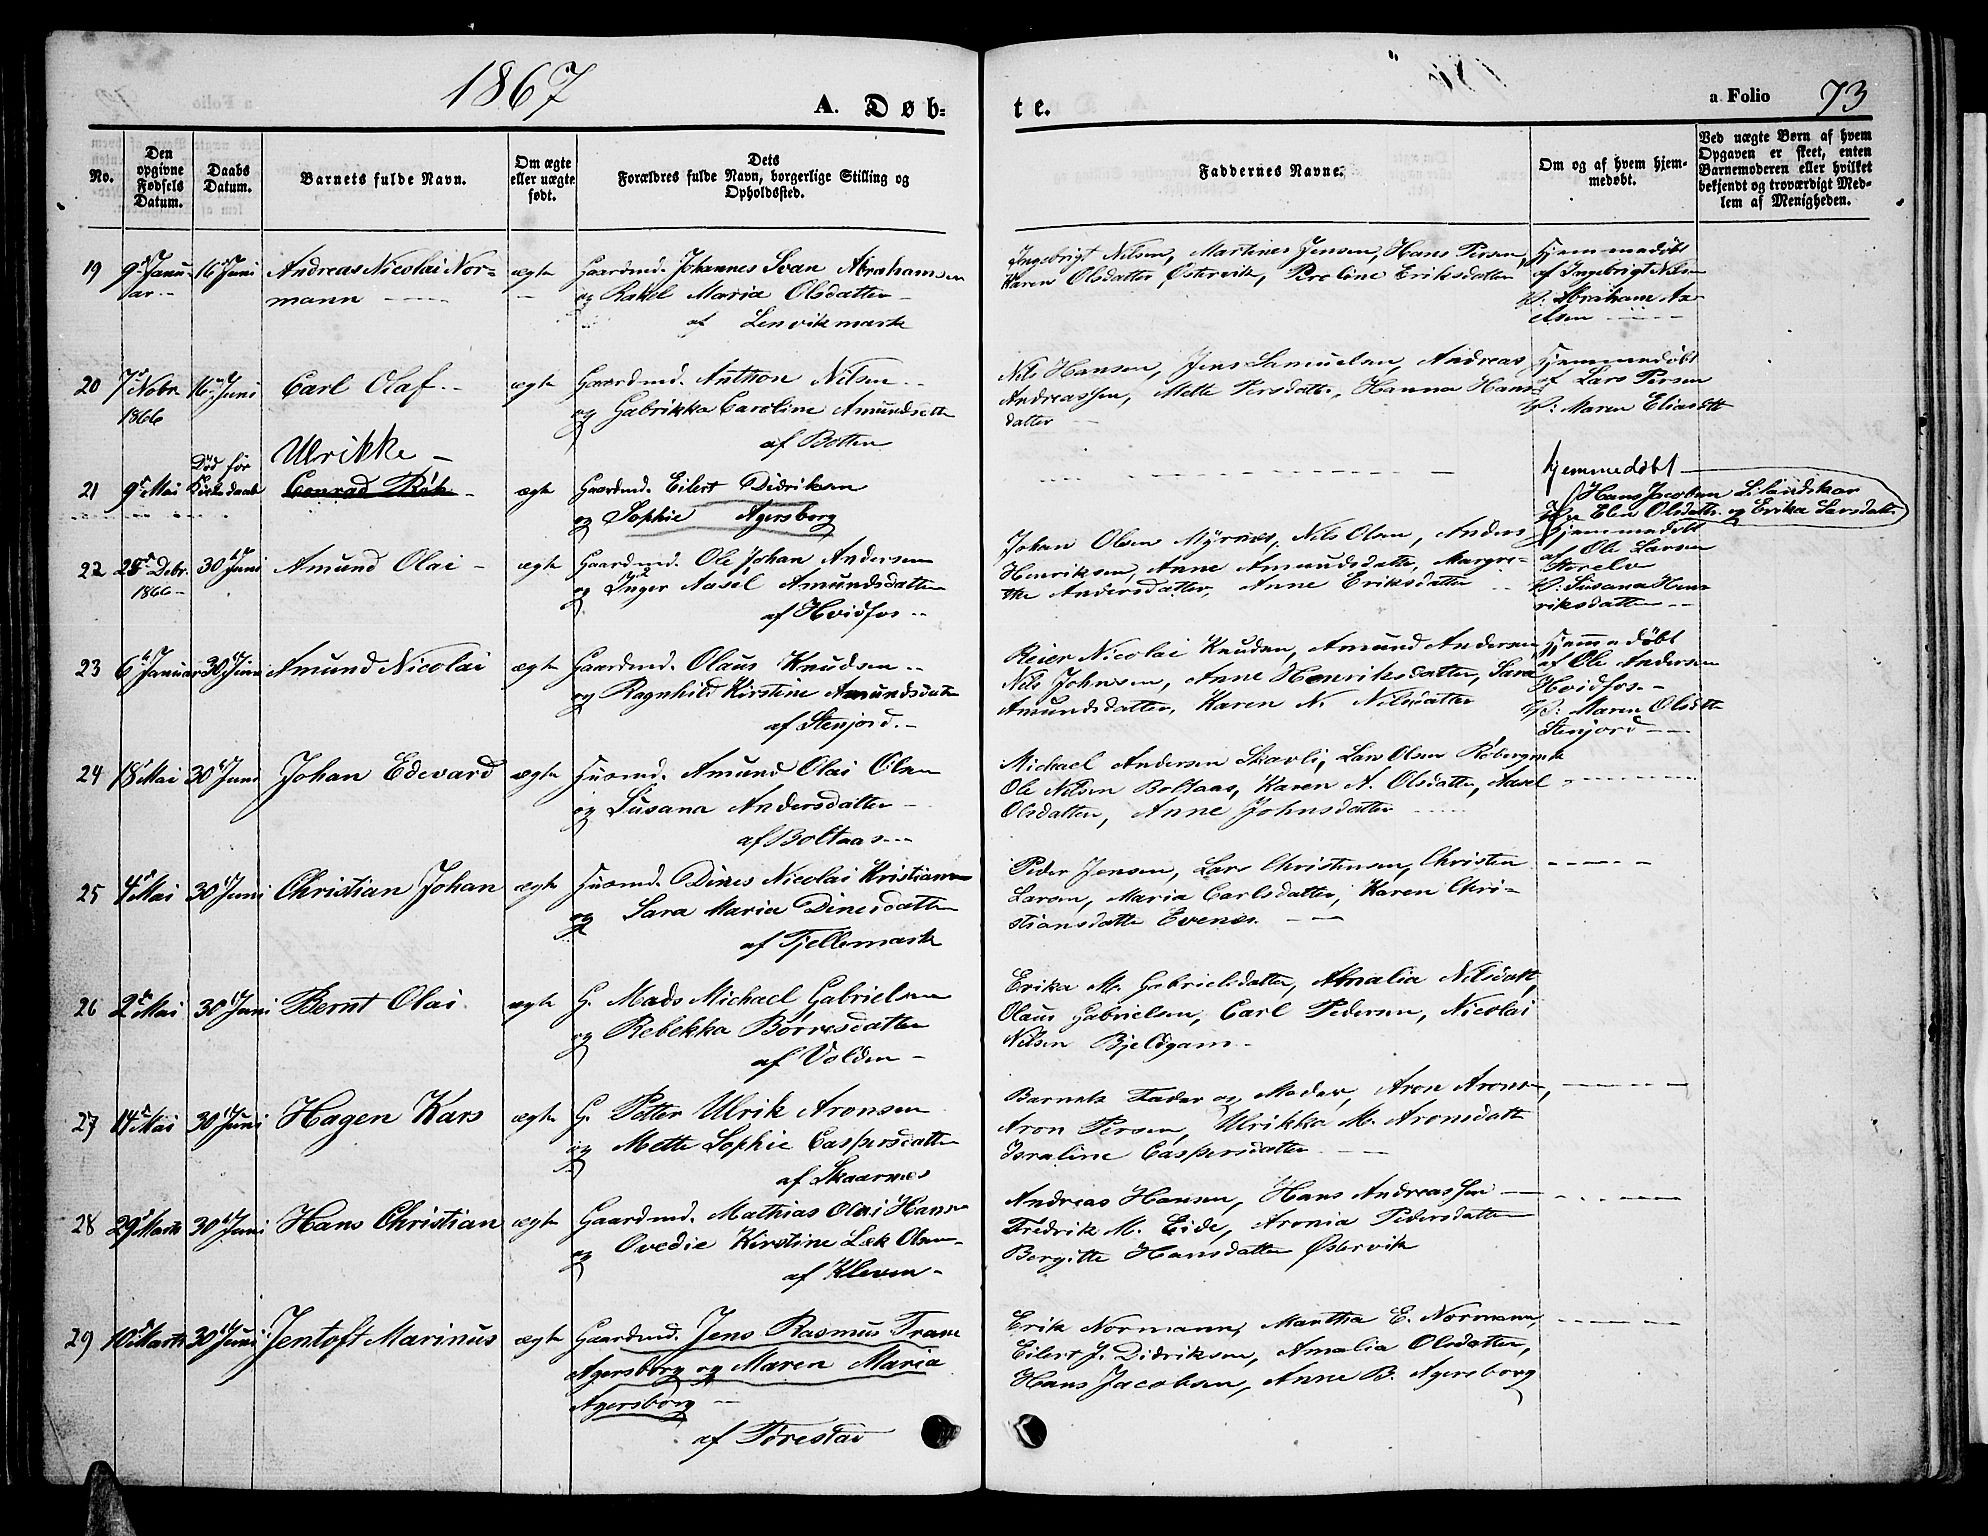 1867
A. Døb-
te.
a Folio 73
No.
Den opgivne Fødsels Datum.
Daabs Datum.
Barnets fulde Navn.
Om ægte eller uægte født.
Dets Forældres fulde Navn, borgerlige Stilling og Opholdssted.
Faddernes Navne.
Om og af hvem hjemmedøbt.
Ved uægte Børn af hvem Opgaven er skeet, enten Barnemoderen eller hvilket bekjendt og troværdigt Medlem af Menigheden.
19 9de Janu- 16de Juni Andreas Nicolai Nor- ægte Gaardmd. Johannes Svan Abrahamsen
ar -- mann og Rakel Maria Olsdatter
af Lenvikmark
Ingebrigt Nilsen, Martines Jensen, Hans Persen, Hjemmedøbt
Karen Olsdatter Østervik, Pereline Eriksdatter af Ingebrigt Nilsen
V: Abraham Ax-
elsen
20 7de Nobr. 16de Juni Carl Olaf ægte Gaardmd. Anthon Nilsen
1866 og Gabrikka Caroline Amundsdtt
af Botten
Nils Hansen, Jens Samuelsen, Andreas Hjemmedøbt
Andreassen, Mette Persdatter, Hanna Hans- af Lars Persen
datter V: Maren Eliasdtt
Ulrikke
Død før
21 9de Mai Kirkedaab Conrad ægte Gaardmd. Eilert Didriksen
og Sophie Agersborg
hjemmedøbt
af Hans Jacobsen Lilandskar
Elen Olsdatter og Erika Larsdatter
22 28de Debr. 30de Juni Amund Olai ægte Gaardmd. Ole Johan Andersen
1866 og Inger Aasel Amundsdatter
af Hvidfos
Johan Olsen Myrnes, Nils Olsen, Anders Hjemmedøbt
Henriksen, Anne Amundsdatter, Margre- af Ole Larsen
the Andersdatter, Anne Eriksdatter Storelv
V: Susana Hen-
riksdatter
23 6te Januar 30de Juni Amund Nicolai ægte Gaardmd. Olaus Knudsen
og Ragnhild Kirstine Amundsdatter
af Stenjord
Reier Nicolai Knudsen, Amund Andersen, Hjemmedøbt
Nils Johnsen, Anne Henriksdatter, Sara af Ole Andersen
Amundsdatter, Karen N. Nilsdatter Hvidfos
V: Maren Olsdtt
Stenjord
24 18de Mai 30de Juni Johan Edevard ægte Huusmd. Amund Olai Olsen
og Susana Andersdatter
af Boltaas
Michael Andersen Skavli, Lars Olsen Røbergmk
Ole Nilsen Boltaas, Karen A. Olsdatter, Aasel
Olsdatter, Anne Johnsdatter
25 4de Mai 30de Juni Christian Johan ægte Huusmd. Dines Nicolai Kristiansen
og Sara Maria Dinesdatter
af Fjellemark
Peder Jensen, Lars Christensen, Christen
Larsen, Maria Carlsdatter, Karen Chri-
stiansdatter Evenes
26 2de Mai 30de Juni Bernt Olai ægte G. Mads Michael Gabrielsen
og Rebekka Børresdatter
af Volden
Erika M. Gabrielsdatter, Amalia Nilsdatt,
Olaus Gabrielsen, Carl Pedersen, Nicolai
Nilsen Bjeldgam
27 14de Mai 30de Juni Hagen Kars ægte G. Petter Ulrik Aronsen
og Mette Sophie Caspersdatter
af Skaarnes
Barnets Fader og Moder, Aron Arons-,
Aron Persen, Ulrikka M. Aronsdatt
Israline Caspersdatter
28 29de Marts 30de Juni Hans Christian ægte Gaardmd. Mathias Olai Hansen
og Ovedie Kirstine Lek Olsen
af Kleven
Andreas Hansen, Hans Andreassen
Fredrik M. Eide, Aronia Pedersdatter
Bergitte Hansdatter Østervik
29 10de Marts 30de Juni Jentoft Marinus ægte Gaardmd. Jens Rasmus Frane
Agersborg og Maren Maria
Agersborg
af Torestad
Erik Normann, Martha E. Normann,
Eilert J. Didriksen, Amalia Olsdatter,
Hans Jacobsen, Anne B. Agersborg